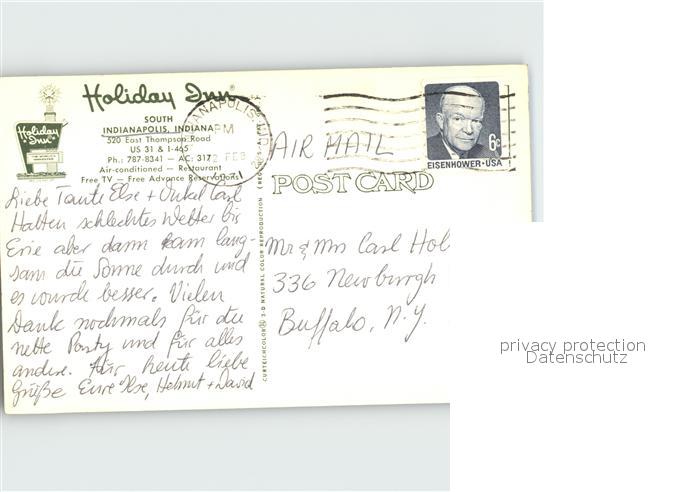 Holiday Inn®
SOUTH
INDIANAPOLIS, INDIANA
520 East Thompson Road
US 31 & I-465
Ph.: 787-8341 — AC: 317
Air-conditioned — Restaurant
Free TV — Free Advance Reservations
Holiday Inn
Liebe Tante Else + Onkel Carl
Hatten schlechtes Wetter bis
Erie aber dann kam lang-
sam die Sonne durch und
es wurde besser. Vielen
Dank nochmals für die
nette Party und für alles
andere. Für heute liebe
Grüße Eure Ilse, Helmut + David
CURTEICHCOLOR® 3-D NATURAL COLOR REPRODUCTION
INDIANAPOLIS
PM
2 FEB
AIR MAIL
6c
EISENHOWER·USA
POST CARD
Mr & Mrs Carl Hol
336 Newburgh
Buffalo, N.Y.
privacy protection
Datenschutz